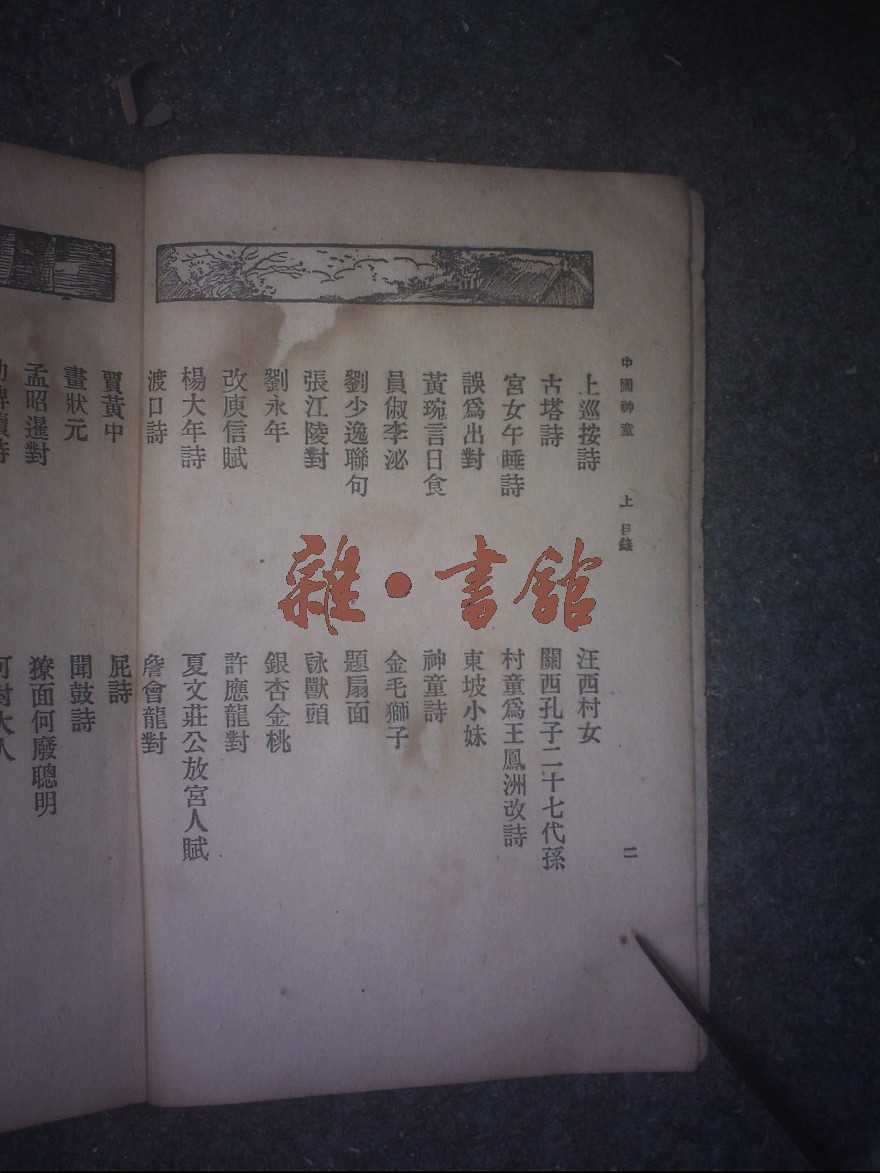 中國神童 上 目錄 二
上巡按詩
古塔詩
宮女午睡詩
誤爲出對
黃琬言日食
員俶李泌
劉少逸聯句
張江陵對
劉永年
改庾信賦
楊大年詩
渡口詩
汪西村女
關西孔子二十七代孫
村童爲王鳳洲改詩
東坡小妹
神童詩
金毛獅子
題扇面
詠獸頭
銀杏金桃
許應龍對
夏文莊公放宮人賦
詹會龍對
賈黃中
畫狀元
孟昭暹對
屁詩
聞鼓詩
獠面何廢聰明
雜·書館